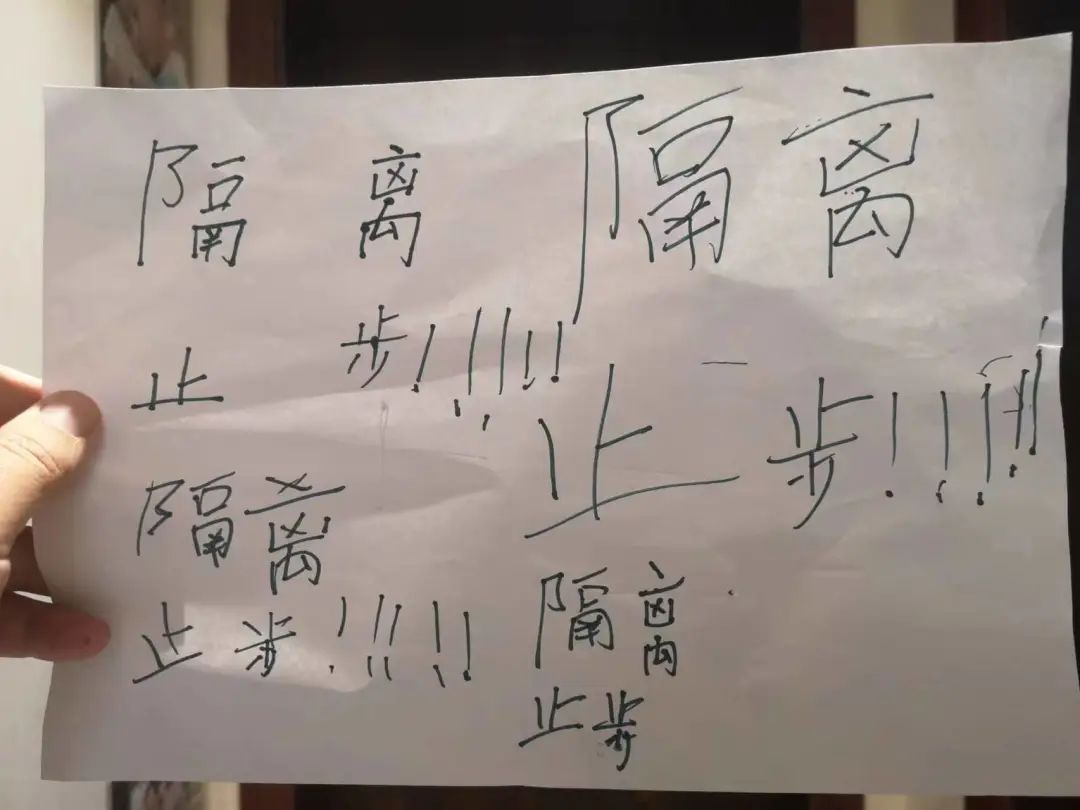 隔离
止步!!!!!
隔离
止步!!!!!
隔离
止步!!!!!
隔离
止步